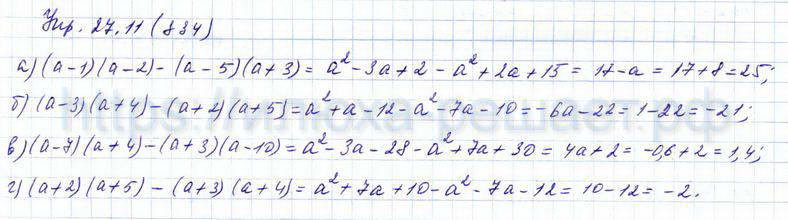 Упр. 27.11 (834)
а) (a-1)(a-2) - (a-5)(a+3) = a² - 3a + 2 - a² + 2a + 15 = 17 - a = 17 + 8 = 25;
б) (a-3)(a+4) - (a+2)(a+5) = a² + a - 12 - a² - 7a - 10 = -6a - 22 = 1 - 22 = -21;
в) (a-7)(a+4) - (a+3)(a-10) = a² - 3a - 28 - a² + 7a + 30 = 4a + 2 = -0,6 + 2 = 1,4;
г) (a+2)(a+5) - (a+3)(a+4) = a² + 7a + 10 - a² - 7a - 12 = 10 - 12 = -2.